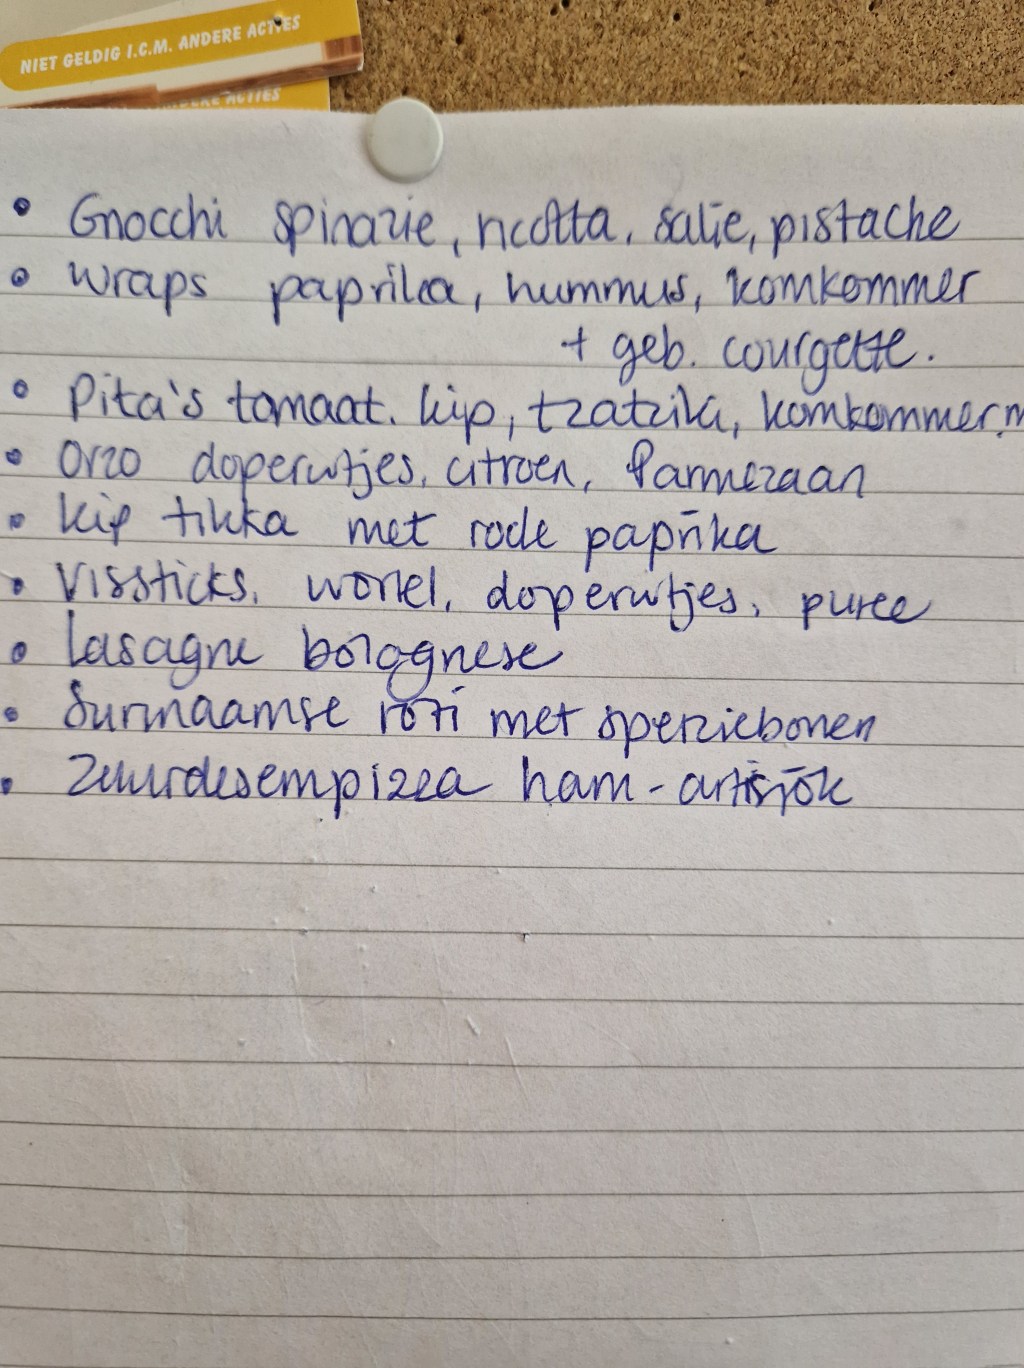 NIET GELDIG I.C.M. ANDERE ACTIES
ANDERE ACTIES
• Gnocchi spinazie, ricotta, salie, pistache
• wraps paprika, hummus, komkommer
+ geb. courgette.
• Pita's tomaat. kip, tzatziki, komkommer,
• Orzo doperwtjes, citroen, Parmezaan
• kip tikka met rode paprika
• Vissticks, wortel, doperwtjes, puree
• Lasagne bolognese
• Surinaamse roti met sperziebonen
• Zuurdesempizza ham - artisjok